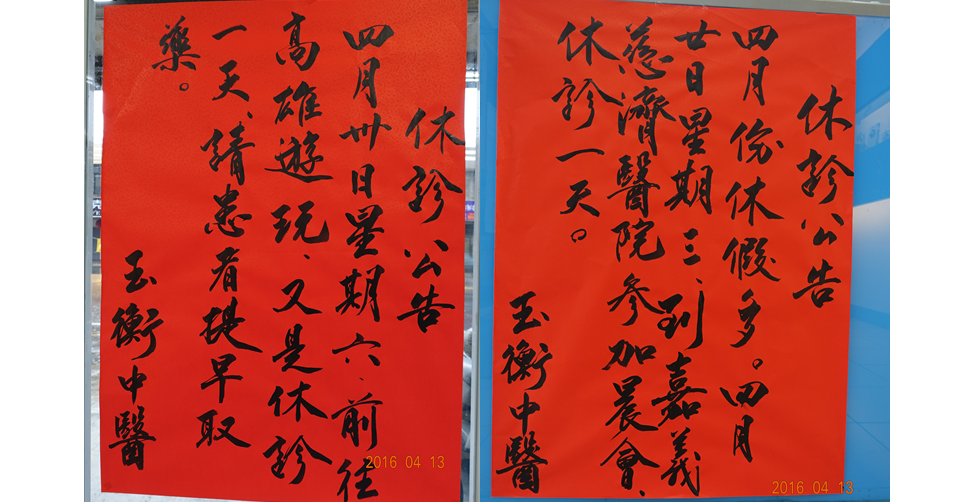 休診公告
四月份休假多。四月
廿日星期三、到嘉義
慈濟醫院參加晨會、
休診一天。
玉衡中醫
2016 04 13
休診公告
四月卅日星期六、前往
高雄遊玩、又是休診
一天、請患者提早取
藥。
玉衡中醫
2016 04 13